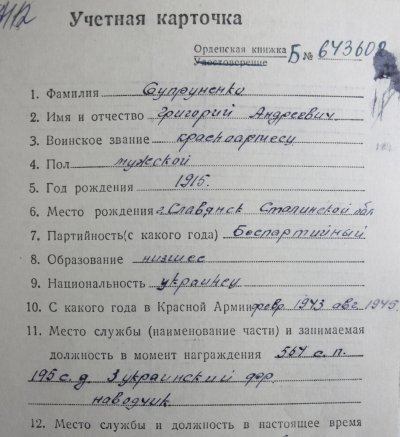 Учетная карточка
Орденская книжка
Удостоверение Б № 643608
1. Фамилия Супруненко
2. Имя и отчество Григорий Андреевич.
3. Воинское звание красноармеец
4. Пол мужской
5. Год рождения 1915.
6. Место рождения г. Славянск Сталинской обл
7. Партийность (с какого года) Беспартийный
8. Образование низшее
9. Национальность украинец
10. С какого года в Красной Армии февр 1943 авг 1945.
11. Место службы (наименование части) и занимаемая
должность в момент награждения 564 с. п.
195 с. д. 3 украинский фр.
наводчик
12. Место службы и должность в настоящее время